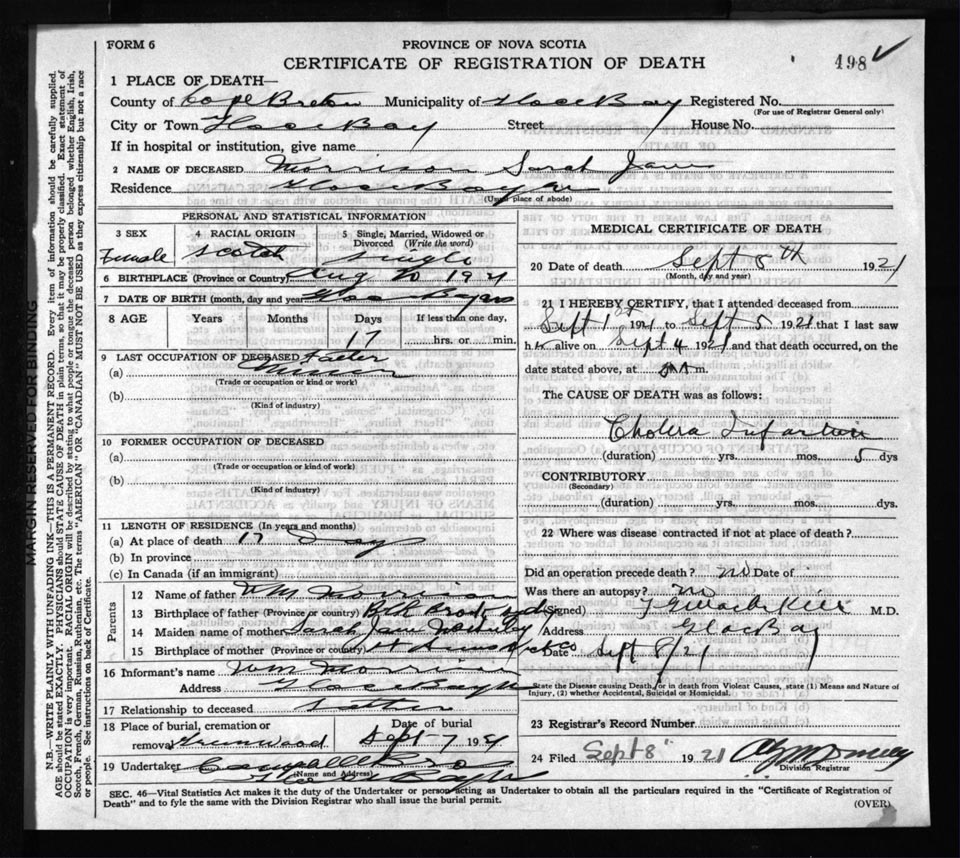 FORM 6
PROVINCE OF NOVA SCOTIA
CERTIFICATE OF REGISTRATION OF DEATH
498
1 PLACE OF DEATH—
County of Cape Breton Municipality of Glace Bay Registered No.
(For use of Registrar General only)
City or Town Glace Bay Street House No.
If in hospital or institution, give name
2 NAME OF DECEASED Morrison Sarah Jane
Residence Glace Bay
(Usual place of abode)
PERSONAL AND STATISTICAL INFORMATION
3 SEX Female
4 RACIAL ORIGIN Scotch
5 Single, Married, Widowed or Divorced (Write the word) Single
6 BIRTHPLACE (Province or Country) Aug 20 1921
7 DATE OF BIRTH (month, day and year) Glace Bay NS
8 AGE Years Months Days 17 If less than one day, hrs. or min.
9 LAST OCCUPATION OF DECEASED Father
(a) Miner
(Trade or occupation or kind or work)
(b)
(Kind of industry)
10 FORMER OCCUPATION OF DECEASED
(a)
(Trade or occupation or kind of work)
(b)
(Kind of industry)
11 LENGTH OF RESIDENCE (In years and months)
(a) At place of death 17 Day
(b) In province
(c) In Canada (if an immigrant)
Parents
12 Name of father Wm Morrison
13 Birthplace of father (Province or country)
14 Maiden name of mother Sarah Jane
15 Birthplace of mother (Province or country)
16 Informant's name Wm Morrison
Address Glace Bay
17 Relationship to deceased Father
18 Place of burial, cremation or removal Greenwood
Date of burial Sept 7 1921
19 Undertaker Campbell Bro
(Name and Address) Glace Bay
MEDICAL CERTIFICATE OF DEATH
20 Date of death Sept 5th 1921
(Month, day and year)
21 I HEREBY CERTIFY, that I attended deceased from
Sept 1st 1921 to Sept 5 1921 that I last saw
h alive on Sept 4 1921 and that death occurred, on the
date stated above, at m.
The CAUSE OF DEATH was as follows:
Cholera Infantum
(duration) yrs. mos. 5 dys
CONTRIBUTORY
(Secondary)
(duration) yrs. mos. dys.
22 Where was disease contracted if not at place of death?
Did an operation precede death? no Date of
Was there an autopsy? no
(Signed) M.D.
Address Glace Bay
Date Sept 8/21
State the Disease causing Death, or in death from Violent Causes, state (1) Means and Nature of Injury, (2) whether Accidental, Suicidal or Homicidal.
23 Registrar's Record Number
24 Filed Sept 8 1921
Division Registrar
SEC. 46—Vital Statistics Act makes it the duty of the Undertaker or person acting as Undertaker to obtain all the particulars required in the "Certificate of Registration of
Death" and to fyle the same with the Division Registrar who shall issue the burial permit.
(OVER)
MARGIN RESERVED FOR BINDING
N.B.—WRITE PLAINLY WITH UNFADING INK—THIS IS A PERMANENT RECORD. Every item of information should be carefully supplied.
AGE should be stated EXACTLY. PHYSICIANS should STATE CAUSE OF DEATH in plain terms, so that it may be properly classified. Exact statement of
OCCUPATION is very important. RACIAL ORIGIN will be described by stating to what people or tongue the deceased person belonged whether English, Irish,
Scotch, French, German, Russian, Ruthenian, etc. The terms "AMERICAN" OR "CANADIAN" MUST NOT BE USED as they express citizenship but not a race
or people. See instructions on back of Certificate.